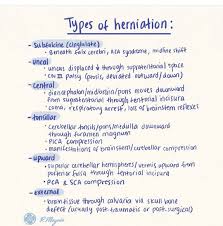 Types of herniation:
- Subfalcine (cingulate)
• Beneath falx cerebri, ACA syndrome, midline shift
- uncal
• uncus displaced ↓ through supratentorial space
• CN III palsy (ptosis, deviated outward/down)
- central
• diencephalon/midbrain/pons moves downward
from supratentorial through tentorial incisura
• coma, respiratory arrest, loss of brainstem reflexes
- tonsillar
• cerebellar tonsils/pons/medulla downward
through foramen magnum
• PICA compression
• manifestations of brainstem/cerebellar compression
- upward
• superior cerebellar hemispheres/vermis upward from
posterior fossa through tentorial incisura
• PCA & SCA compression
- external
• brain tissue through calvaria via skull bone
defect (usually post-traumatic or post-surgical)